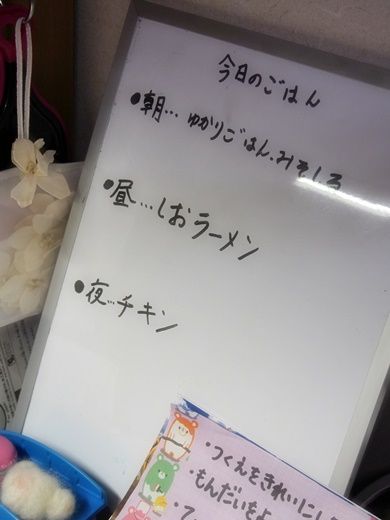 今日のごはん
●朝…ゆかりごはん.みそしる
●昼…しおラーメン
●夜…チキン
・つくえをきれいにし
・もんだいをよ